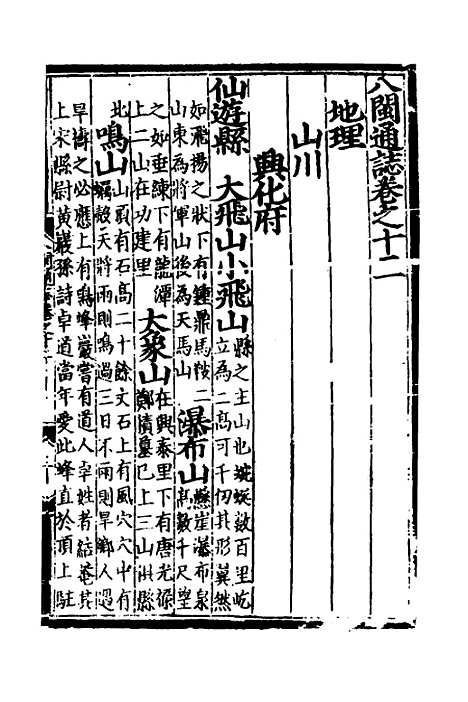 八閩通誌卷之十二
地理
山川
興化府
仙遊縣 大飛山小飛山 縣之主山也蜿蜒数百里屹立為二高可千仞其形翼然
如飛揚之状下有鍾鼎馬鞍二山東為将軍山後為天馬山 瀑布山 懸崖瀑布泉高数千尺望
之如垂練下有龍潭上二山在功建里 大象山 在興泰里下有唐光禄鄭積墓已上三山俱縣
北 鳴山 山㝡有石高二十餘丈石上有風穴穴中有殼天将雨則鳴過三日不雨則旱鄉人遇
旱禱之必應上有鳴峰巖嘗有道人卓姓者結菴其上宋縣尉黄巖孫詩卓道當年愛此峰直於頂上駐